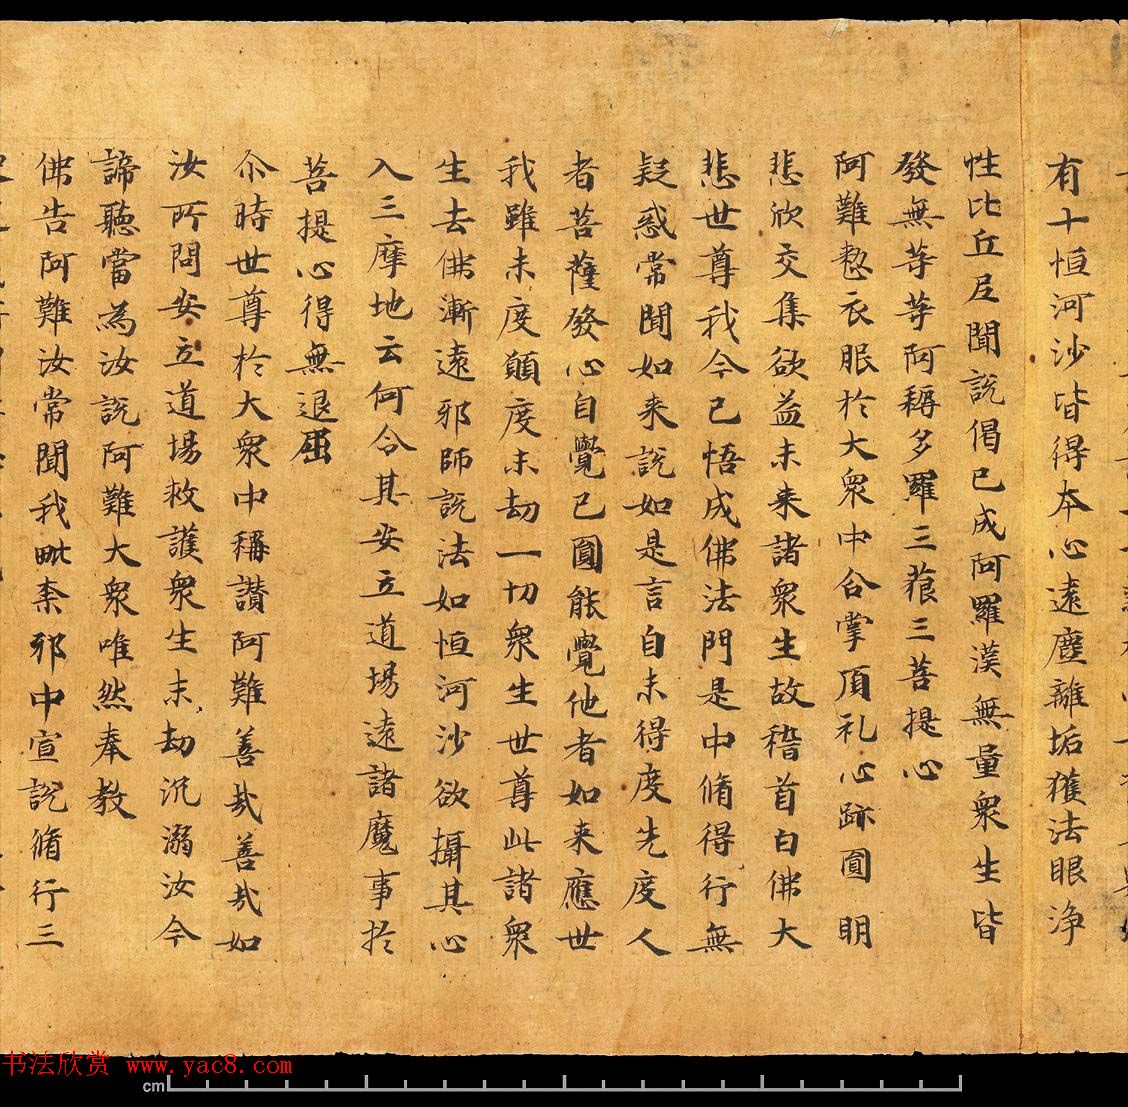 有十恒河沙皆得本心遠塵離垢獲法眼浄
性比丘尼聞説偈已成阿羅漢無量衆生皆
發無等等阿耨多羅三藐三菩提心
阿難整衣服於大衆中合掌頂礼心跡圓明
悲欣交集欲益未来諸衆生故稽首白佛大
悲世尊我今已悟成佛法門是中脩得行無
疑惑常聞如来説如是言自未得度先度人
者菩薩發心自覺已圓能覺他者如来應世
我雖未度願度末劫一切衆生世尊此諸衆
生去佛漸遠邪師説法如恒河沙欲攝其心
入三摩地云何令其安立道場遠諸魔事於
菩提心得無退屈
尒時世尊於大衆中稱讃阿難善哉善哉如
汝所問安立道場救護衆生末劫沉溺汝今
諦聽當為汝説阿難大衆唯然奉教
佛告阿難汝常聞我毗柰邪中宣説脩行三
书法欣赏 www.yac8.com
cm